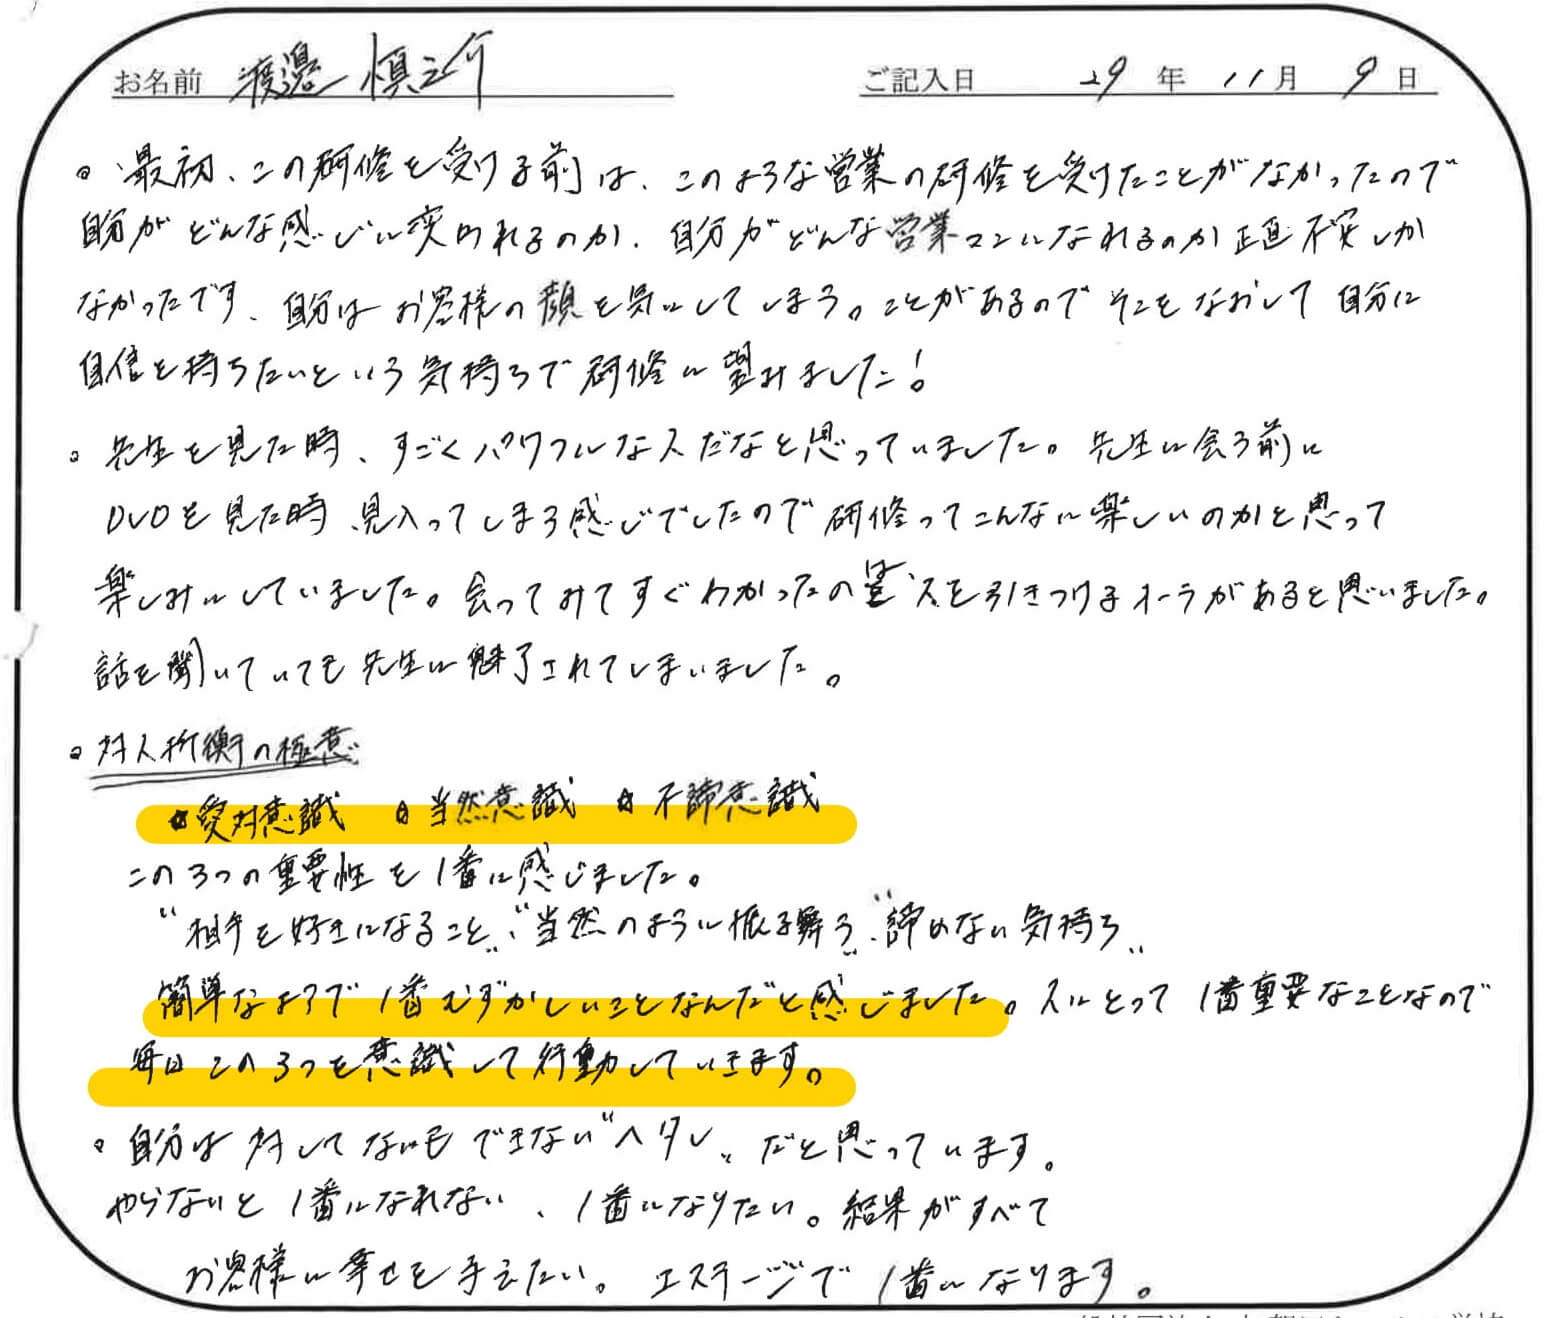 お名前 渡邉 慎之介 ご記入日 29年 11月 9日
。最初、この研修を受ける前は、このような営業の研修を受けたことがなかったので
自分がどんな感じに変われるのか、自分がどんな営業マンになれるのか正直不安しか
なかったです、自分はお客様の顔を気にしてしまう。ことがあるのでそこをなおして自分に
自信を持ちたいという気持ちで研修に望みました!
。先生を見た時、すごくパワフルな人だなと思っていました。先生に会う前に
DVDを見た時、見入ってしまう感じでしたので研修ってこんなに楽しいのかと思って
楽しみにしていました。会ってみてすぐわかったのは人を引きつけるオーラがあると思いました。
話を聞いていても先生に魅了されてしまいました。
。対人折衝の極意
☆愛対意識 ☆当然意識 ☆不諦意識
この3つの重要性を1番に感じました。
“相手を好きになること„“当然のように振る舞う„“諦めない気持ち„
簡単なようで1番むずかしいことなんだと感じました。人にとって1番重要なことなので
毎日この3つを意識して行動していきます。
。自分は対してなにもできない“ヘタレ„だと思っています。
やらないと1番になれない、1番になりたい。結果がすべて
お客様に幸せを与えたい。エステージで1番になります。